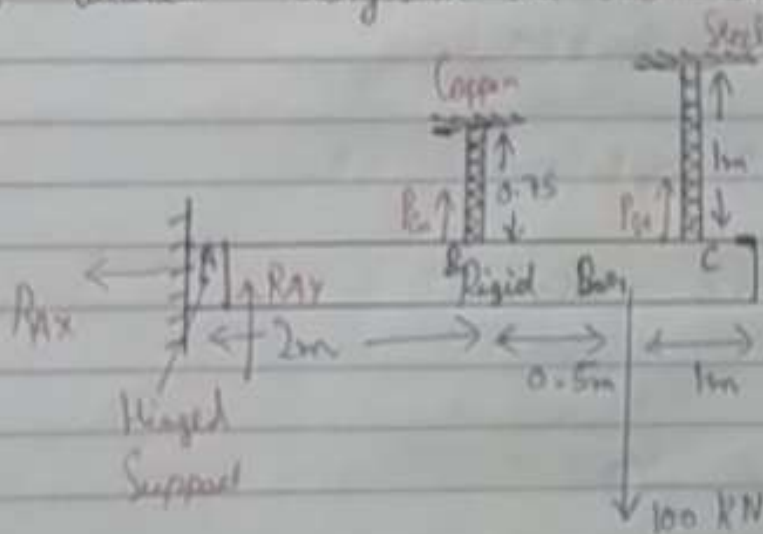 Steel
Copper
1m
0.75
Pcu
Pst
A
B
C
RAX
RAY
Rigid Bar
2m
0.5m
1m
Hinged
Support
100 KN